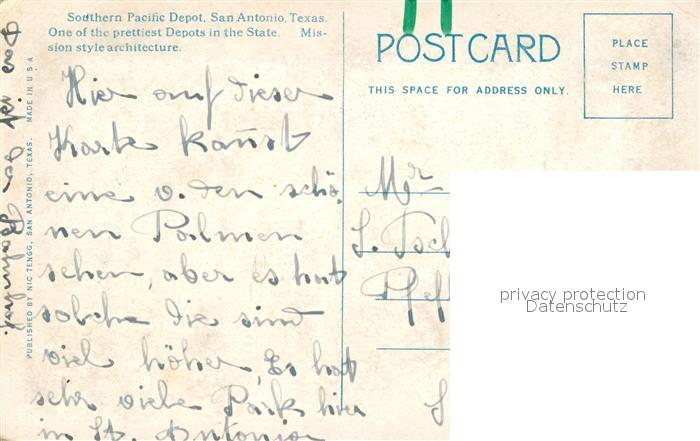 Southern Pacific Depot, San Antonio, Texas.
One of the prettiest Depots in the State. Mis-
sion style architecture.
Hier auf dieser
Karte kannst
eine v. den schö-
nen Palmen
sehen, aber es hat
solche die sind
viel höher, Es hat
sehr viele Park hier
in St. Antonio
Das ist der Bahnhof.
PUBLISHED BY NIC TENGG, SAN ANTONIO, TEXAS. MADE IN U S A
POST CARD
THIS SPACE FOR ADDRESS ONLY.
PLACE
STAMP
HERE
Mr
L. Tsch
Pfeff
privacy protection
Datenschutz